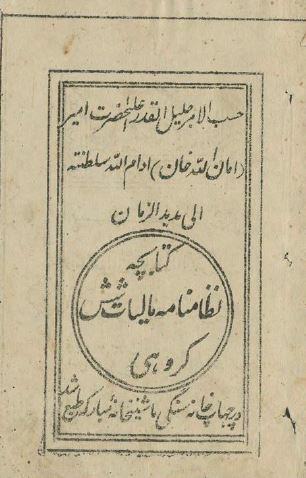 حسب الامر جلیل القدر اعلیحضرت امیر
(امان الله خان) ادام الله سلطنته
الی مدید الزمان
کتابچه
نظامنامه مالیات شش
کروهی
در چهاپ خانه سنگی ماشینخانه مبارکه طبع شد